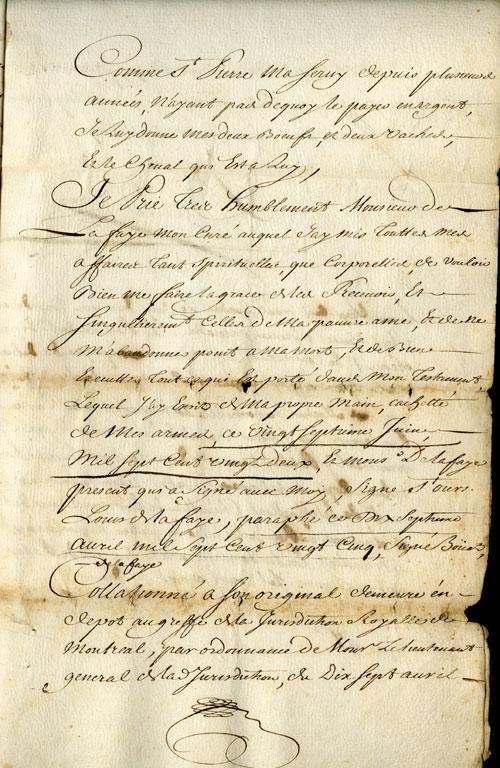 Comme St. Pierre ma servy depuis plusieurs
années, Nayant pas dequoy le payer en argent,
Je Luy donne mes deux Boeufs, et deux vaches,
Et le Cheval qui Est a Luy,
Je Prie tres humblement Monsieur de
La faye Mon Curé auquel J'ay mis touttes mes
affaires tant spirituelles que Corporelles, de vouloir
Bien me faire la grace de les Recevoir, Et
singullierement Celles de Ma pauvre ame, Et de ne
M'abandonner point a ma mort, Et de Bien
Executter tout ce que Est porté dans Mon testament,
Lequel J'ay Ecrit de Ma propre Main, cachetté
de Mes armes, ce vingt Septieme Juin,
Mil sept Cent vingt deux, Et Monsr. Delafaye
present qui a Signé avec Moy, Signé
Louis de la faye, paraphé ce Dix Septieme
avril mil sept Cent vingt Cinq, Signé
de la faye
Collationné a son original demeuré en
depot au greffe de la Jurisdiction Royalle de
Montreal, par ordonnance de Monsr Le lieutenant
general de lad Jurisdiction, du Dix sept avril